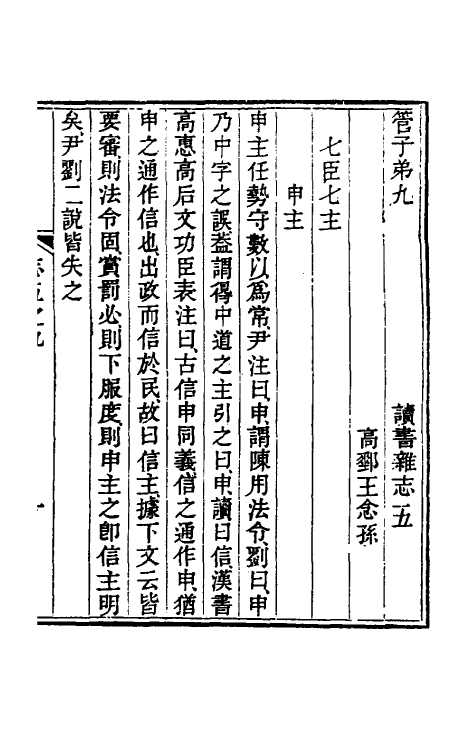 管子弟九
讀書雜志五
高郵王念孫
七臣七主
申主
申主任勢守數以爲常尹注曰申謂陳用法令劉曰申
乃中字之誤葢謂得中道之主引之曰申讀曰信漢書
高惠高后文功臣表注曰古信申同義信之通作申猶
申之通作信也出政而信於民故曰信主據下文云皆
要審則法令固賞罰必則下服度則申主之卽信主明
矣尹劉二說皆失之